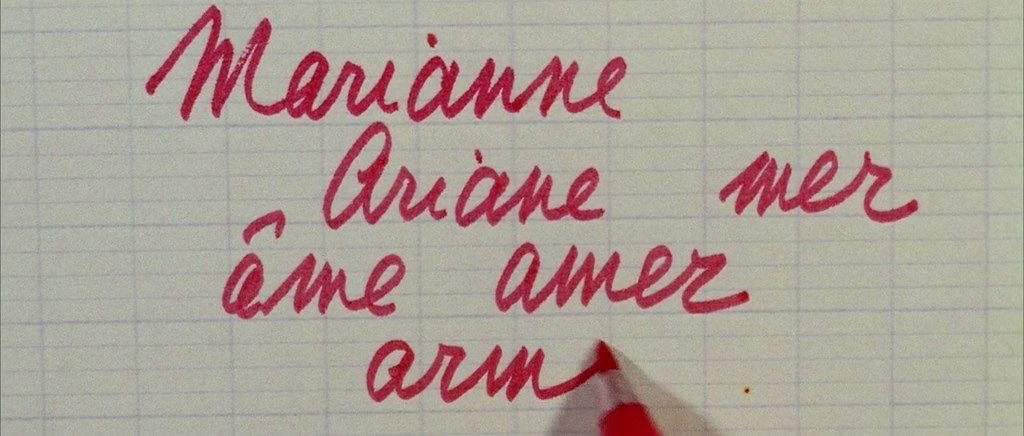 Marianne
Ariane mer
âme amer
arm